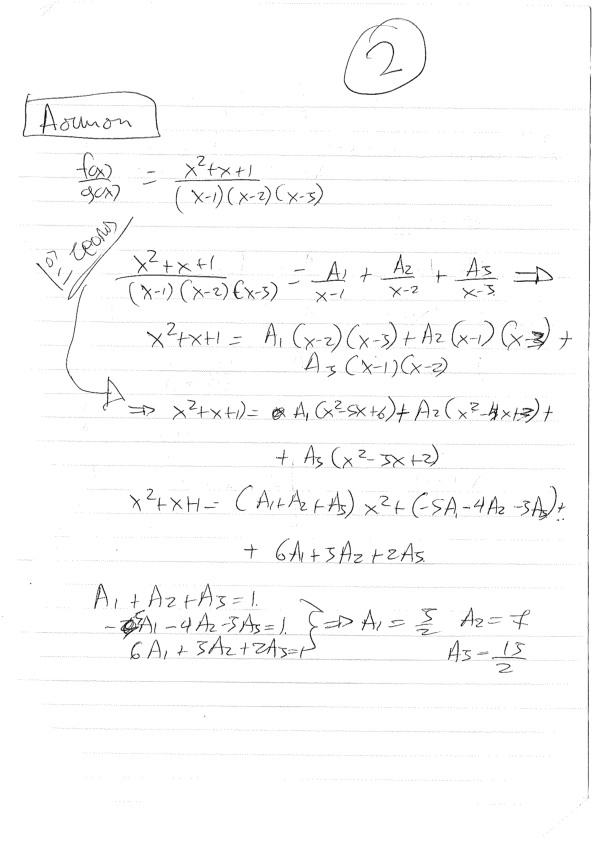 2
Άσκηση
f(x)/g(x) = x²+x+1/(x-1)(x-2)(x-3)
1ος τρόπος
x²+x+1/(x-1)(x-2)(x-3) = A₁/x-1 + A₂/x-2 + A₃/x-3 ⇒
x²+x+1 = A₁(x-2)(x-3)+A₂(x-1)(x-3)+
A₃(x-1)(x-2)
⇒ x²+x+1)= A₁(x²-5x+6)+A₂(x²-4x+3)+
+ A₃(x²-3x+2)
x²+x+1= (A₁+A₂+A₃)x²+(-5A₁-4A₂-3A₃)+
+ 6A₁+3A₂+2A₃
A₁+A₂+A₃=1.
-5A₁-4A₂-3A₃=1. } ⇒ A₁ = 3/2 A₂=7
6A₁+3A₂+2A₃=1 A₃=13/2